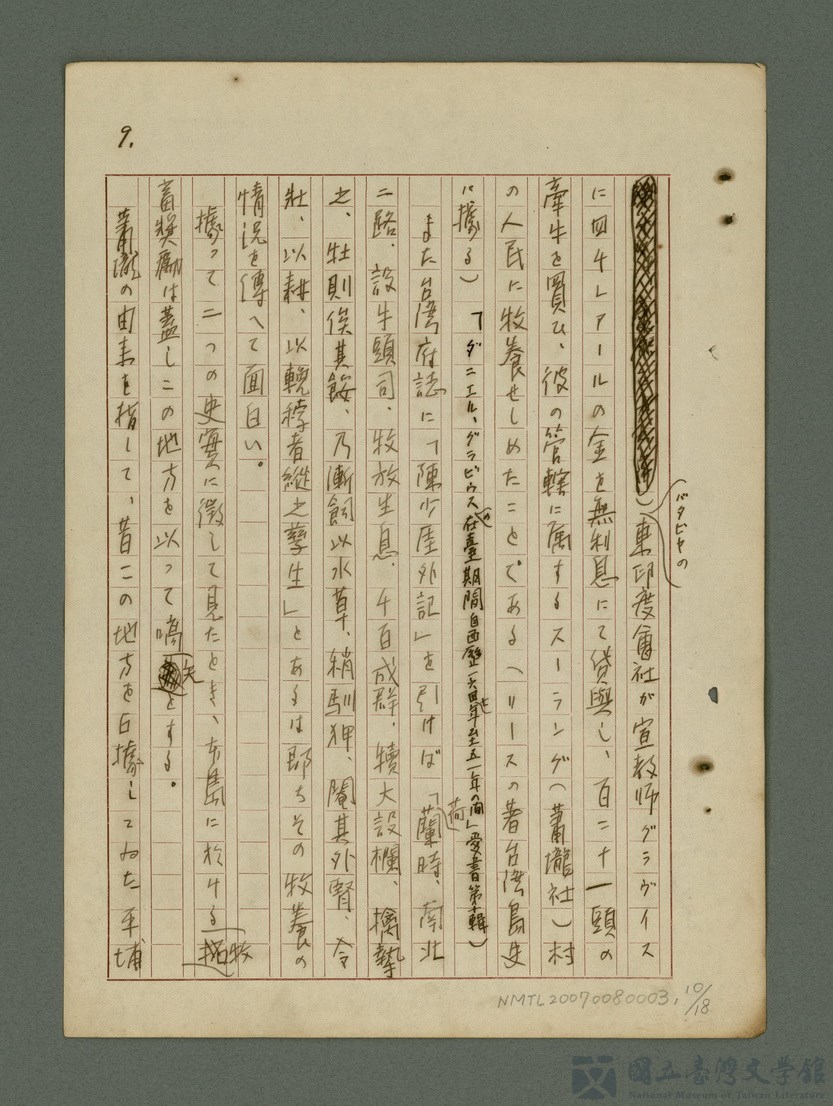 9.
バタビヤの
）東印度會社が宣教師グラヴイス
に四千レアールの金を無利息にて貸與し、百二十一頭の
牽牛を買ひ、彼の管轄に属するスーラング（蕭壠社）村
の人民に牧養せしめたことである（リースの著台湾島史
に據る）「ダニエル、グラビウスの在臺期間自西歴一六四七年至五一年の間」愛書第十輯）
また台湾府誌に「陳少厓外記」を引けば「荷蘭時、南北
二路、設牛頭司、牧放生息、千百成群、犢大設欄、擒縶
之、牡則俟其餒、乃漸飼以水草、稍馴狎、閹其外腎、令
壮、以耕、以輓、牸者縱之孳生」とあるは即ちその牧養の
情況を傳へて面白い。
據って二つの史實に徴して見たとき、本島に於ける牧
畜奨勵は蓋しこの地方を以って嚆矢とする。
蕭壠の由来を指して、昔この地方を占據してゐた平埔
NMTL20070080003, 10/18
國立臺灣文學館
National Museum of Taiwan Literature